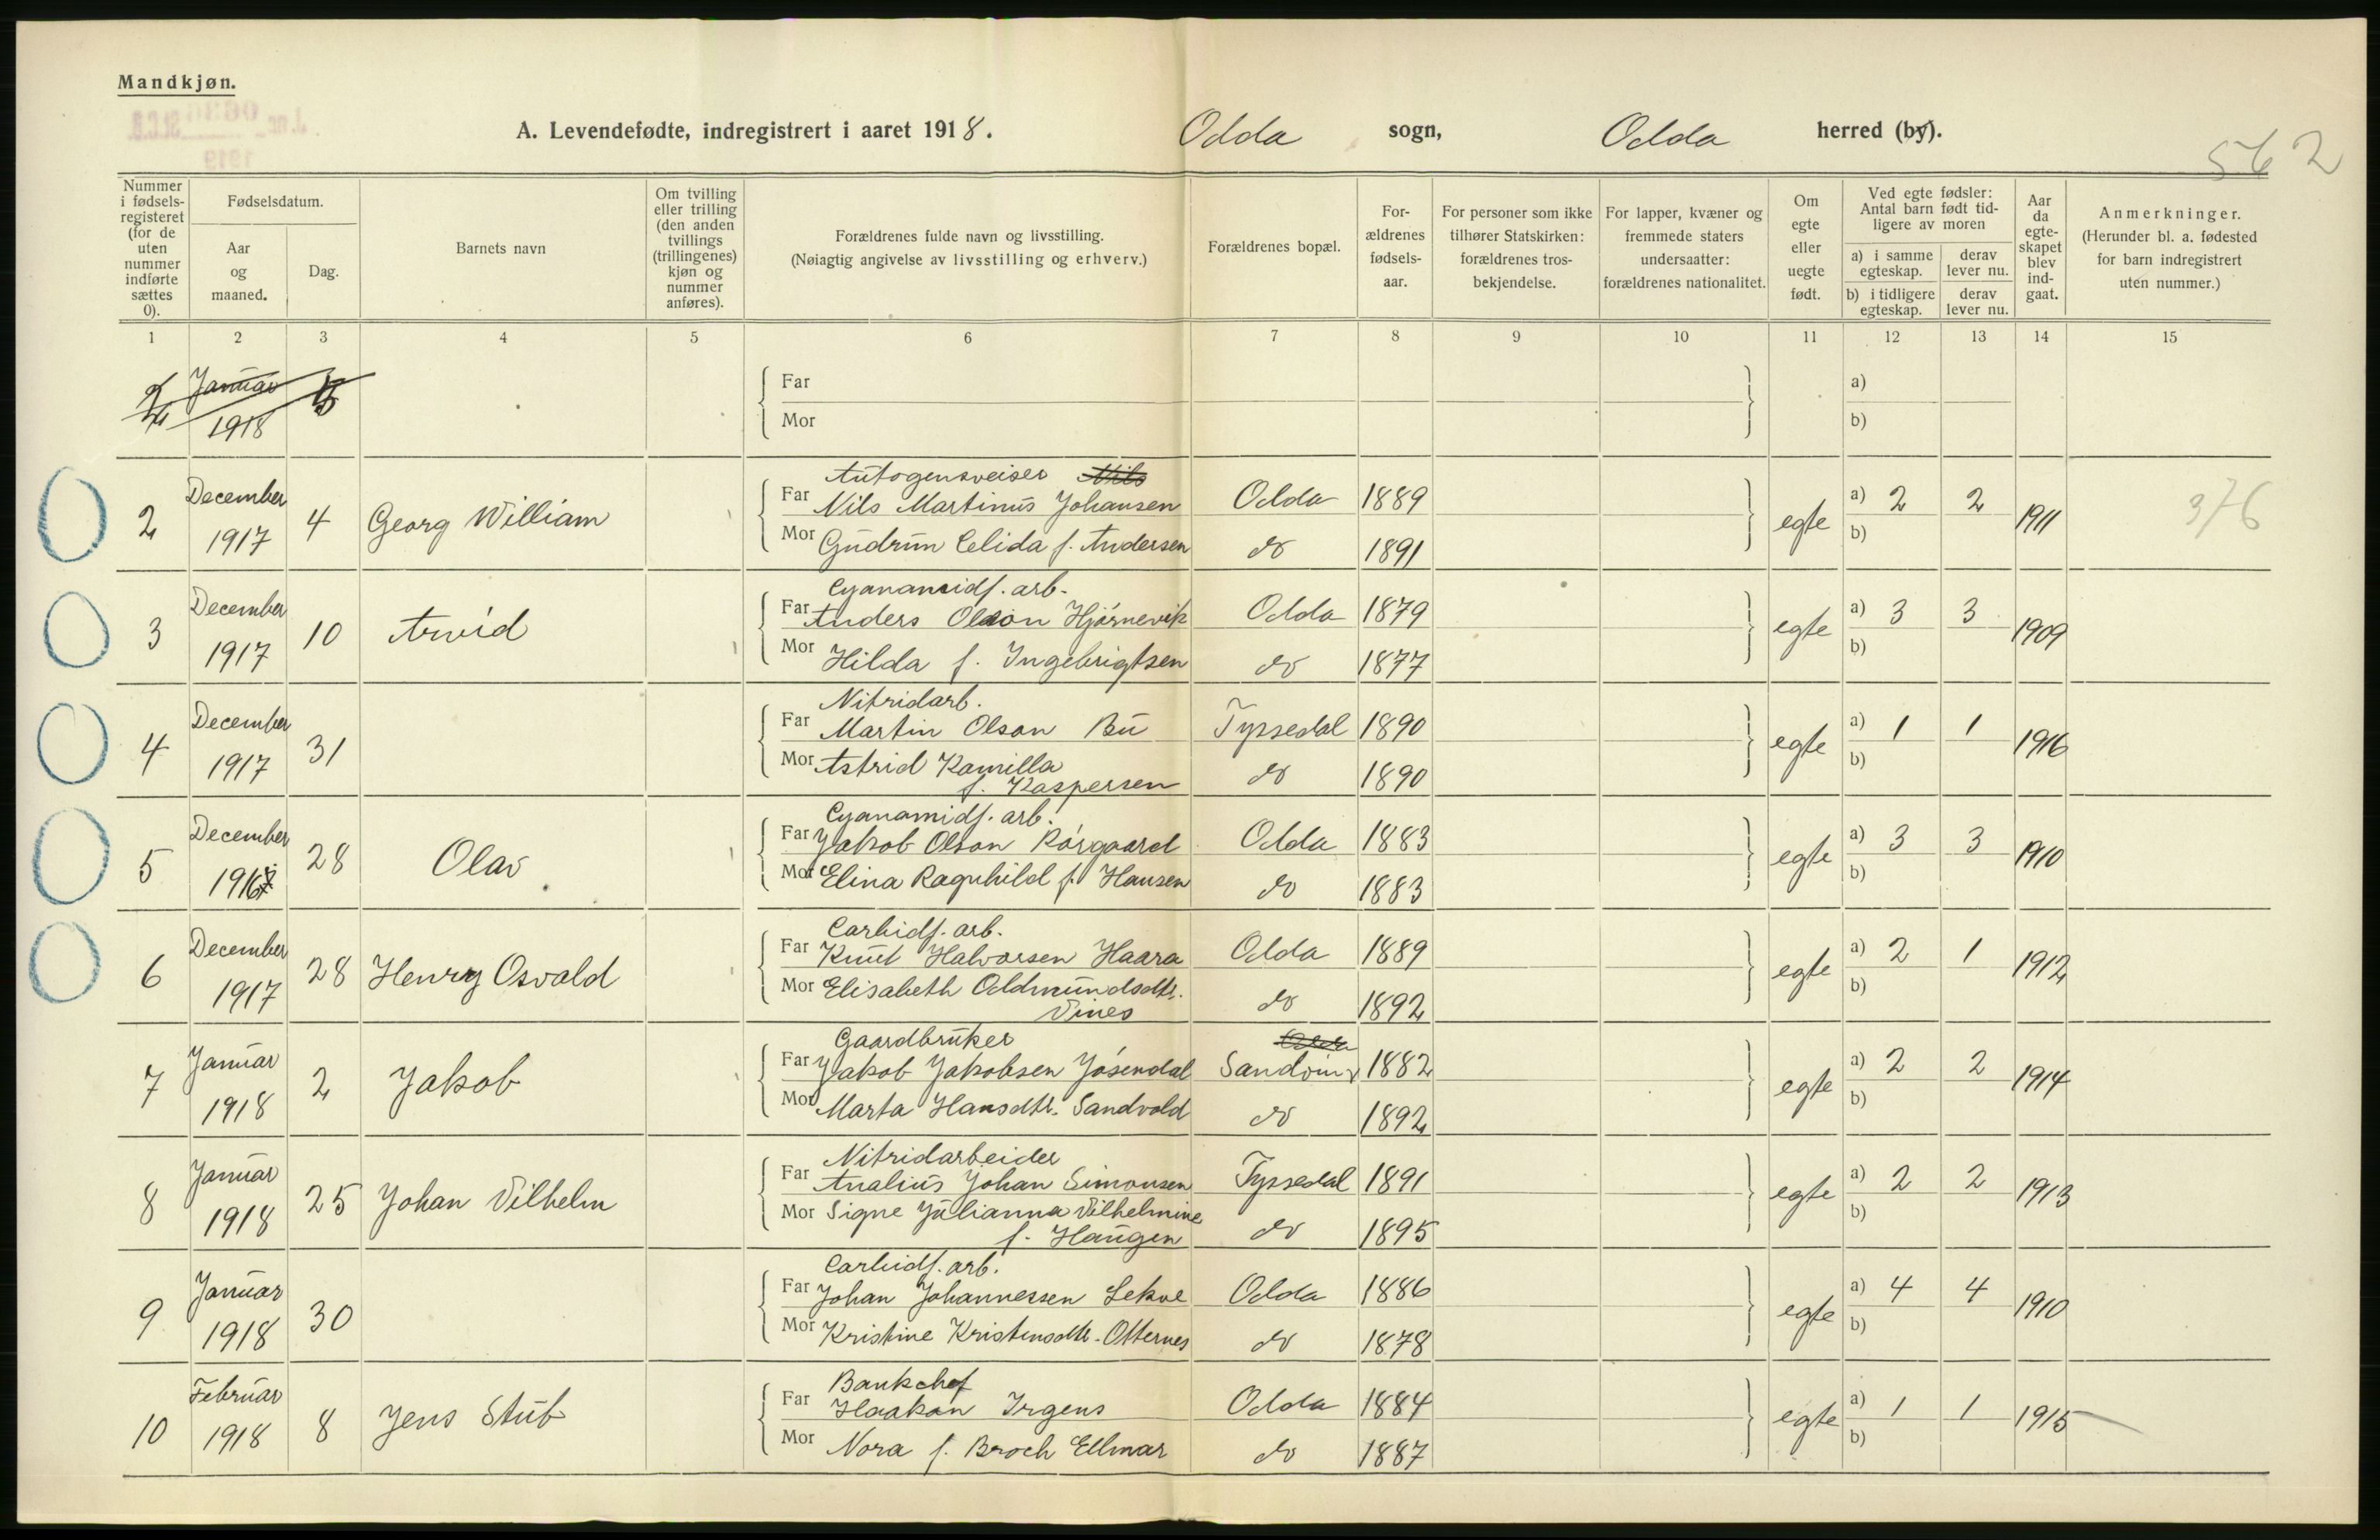 Mandkjøn.
A. Levendefødte, indregistrert i aaret 1918. Odda sogn, Odda herred (by).
562
Nummer i fødsels-registeret (for de uten nummer indførte sættes 0).
Fødselsdatum.
Aar og maaned.
Dag.
Barnets navn
Om tvilling eller trilling (den anden tvillings (trillingenes) kjøn og nummer anføres).
Forældrenes fulde navn og livsstilling.
(Nøiagtig angivelse av livsstilling og erhverv.)
Forældrenes bopæl.
For-ældrenes fødsels-aar.
For personer som ikke tilhører Statskirken: forældrenes tros-bekjendelse.
For lapper, kvæner og fremmede staters undersaatter: forældrenes nationalitet.
Om egte eller uegte født.
Ved egte fødsler: Antal barn født tid-ligere av moren
a) i samme egteskap.
derav lever nu.
b) i tidligere egteskap.
derav lever nu.
Aar da egte-skapet blev ind-gaat.
Anmerkninger.
(Herunder bl. a. fødested for barn indregistrert uten nummer.)
1 2 3 4 5 6 7 8 9 10 11 12 13 14 15
Januar
1918
Far a)
Mor b)
Autogensveiser Nils
2 December 1917 4 Georg William Far Nils Martinus Johansen Odda 1889 egte a) 2 2 1911 376
Mor Gudrun Celida f. Andersen do 1891 b)
Cyanamidf. arb.
3 December 1917 10 Arvid Far Anders Olson Hjørnevik Odda 1879 egte a) 3 3 1909
Mor Hilda f. Ingebrigtsen do 1877 b)
Nitridarb.
4 December 1917 31 Far Martin Olson Bu Tyssedal 1890 egte a) 1 1 1916
Mor Astrid Kamilla do 1890 b)
f. Kaspersen
Cyanamidf. arb.
5 December 1917 28 Olav Far Jakob Olson Rørgaard Odda 1883 egte a) 3 3 1910
Mor Elina Ragnhild f. Hansen do 1883 b)
Carbidf. arb.
6 December 1917 28 Henry Osvald Far Knut Halvorsen Haara Odda 1889 egte a) 2 1 1912
Mor Elisabeth Oddmundsdtr. do 1892 b)
Vines
Gaardbruker Odda
7 Januar 1918 2 Jakob Far Jakob Jakobsen Jøsendal Sandvin 1882 egte a) 2 2 1914
Mor Marta Hansdtr. Sandvold do 1892 b)
Nitridarbeider
8 Januar 1918 25 Johan Vilhelm Far Analius Johan Simonsen Tyssedal 1891 egte a) 2 2 1913
Mor Signe Julianna Vilhelmine do 1895 b)
f. Haugen
Carbidf. arb.
9 Januar 1918 30 Far Johan Johannessen Lekve Odda 1886 egte a) 4 4 1910
Mor Kristine Kristensdtr. Otternes do 1878 b)
Bankchef
10 Februar 1918 8 Jens Stub Far Haakon Irgens Odda 1884 egte a) 1 1 1915
Mor Nora f. Broch Ellmar do 1887 b)